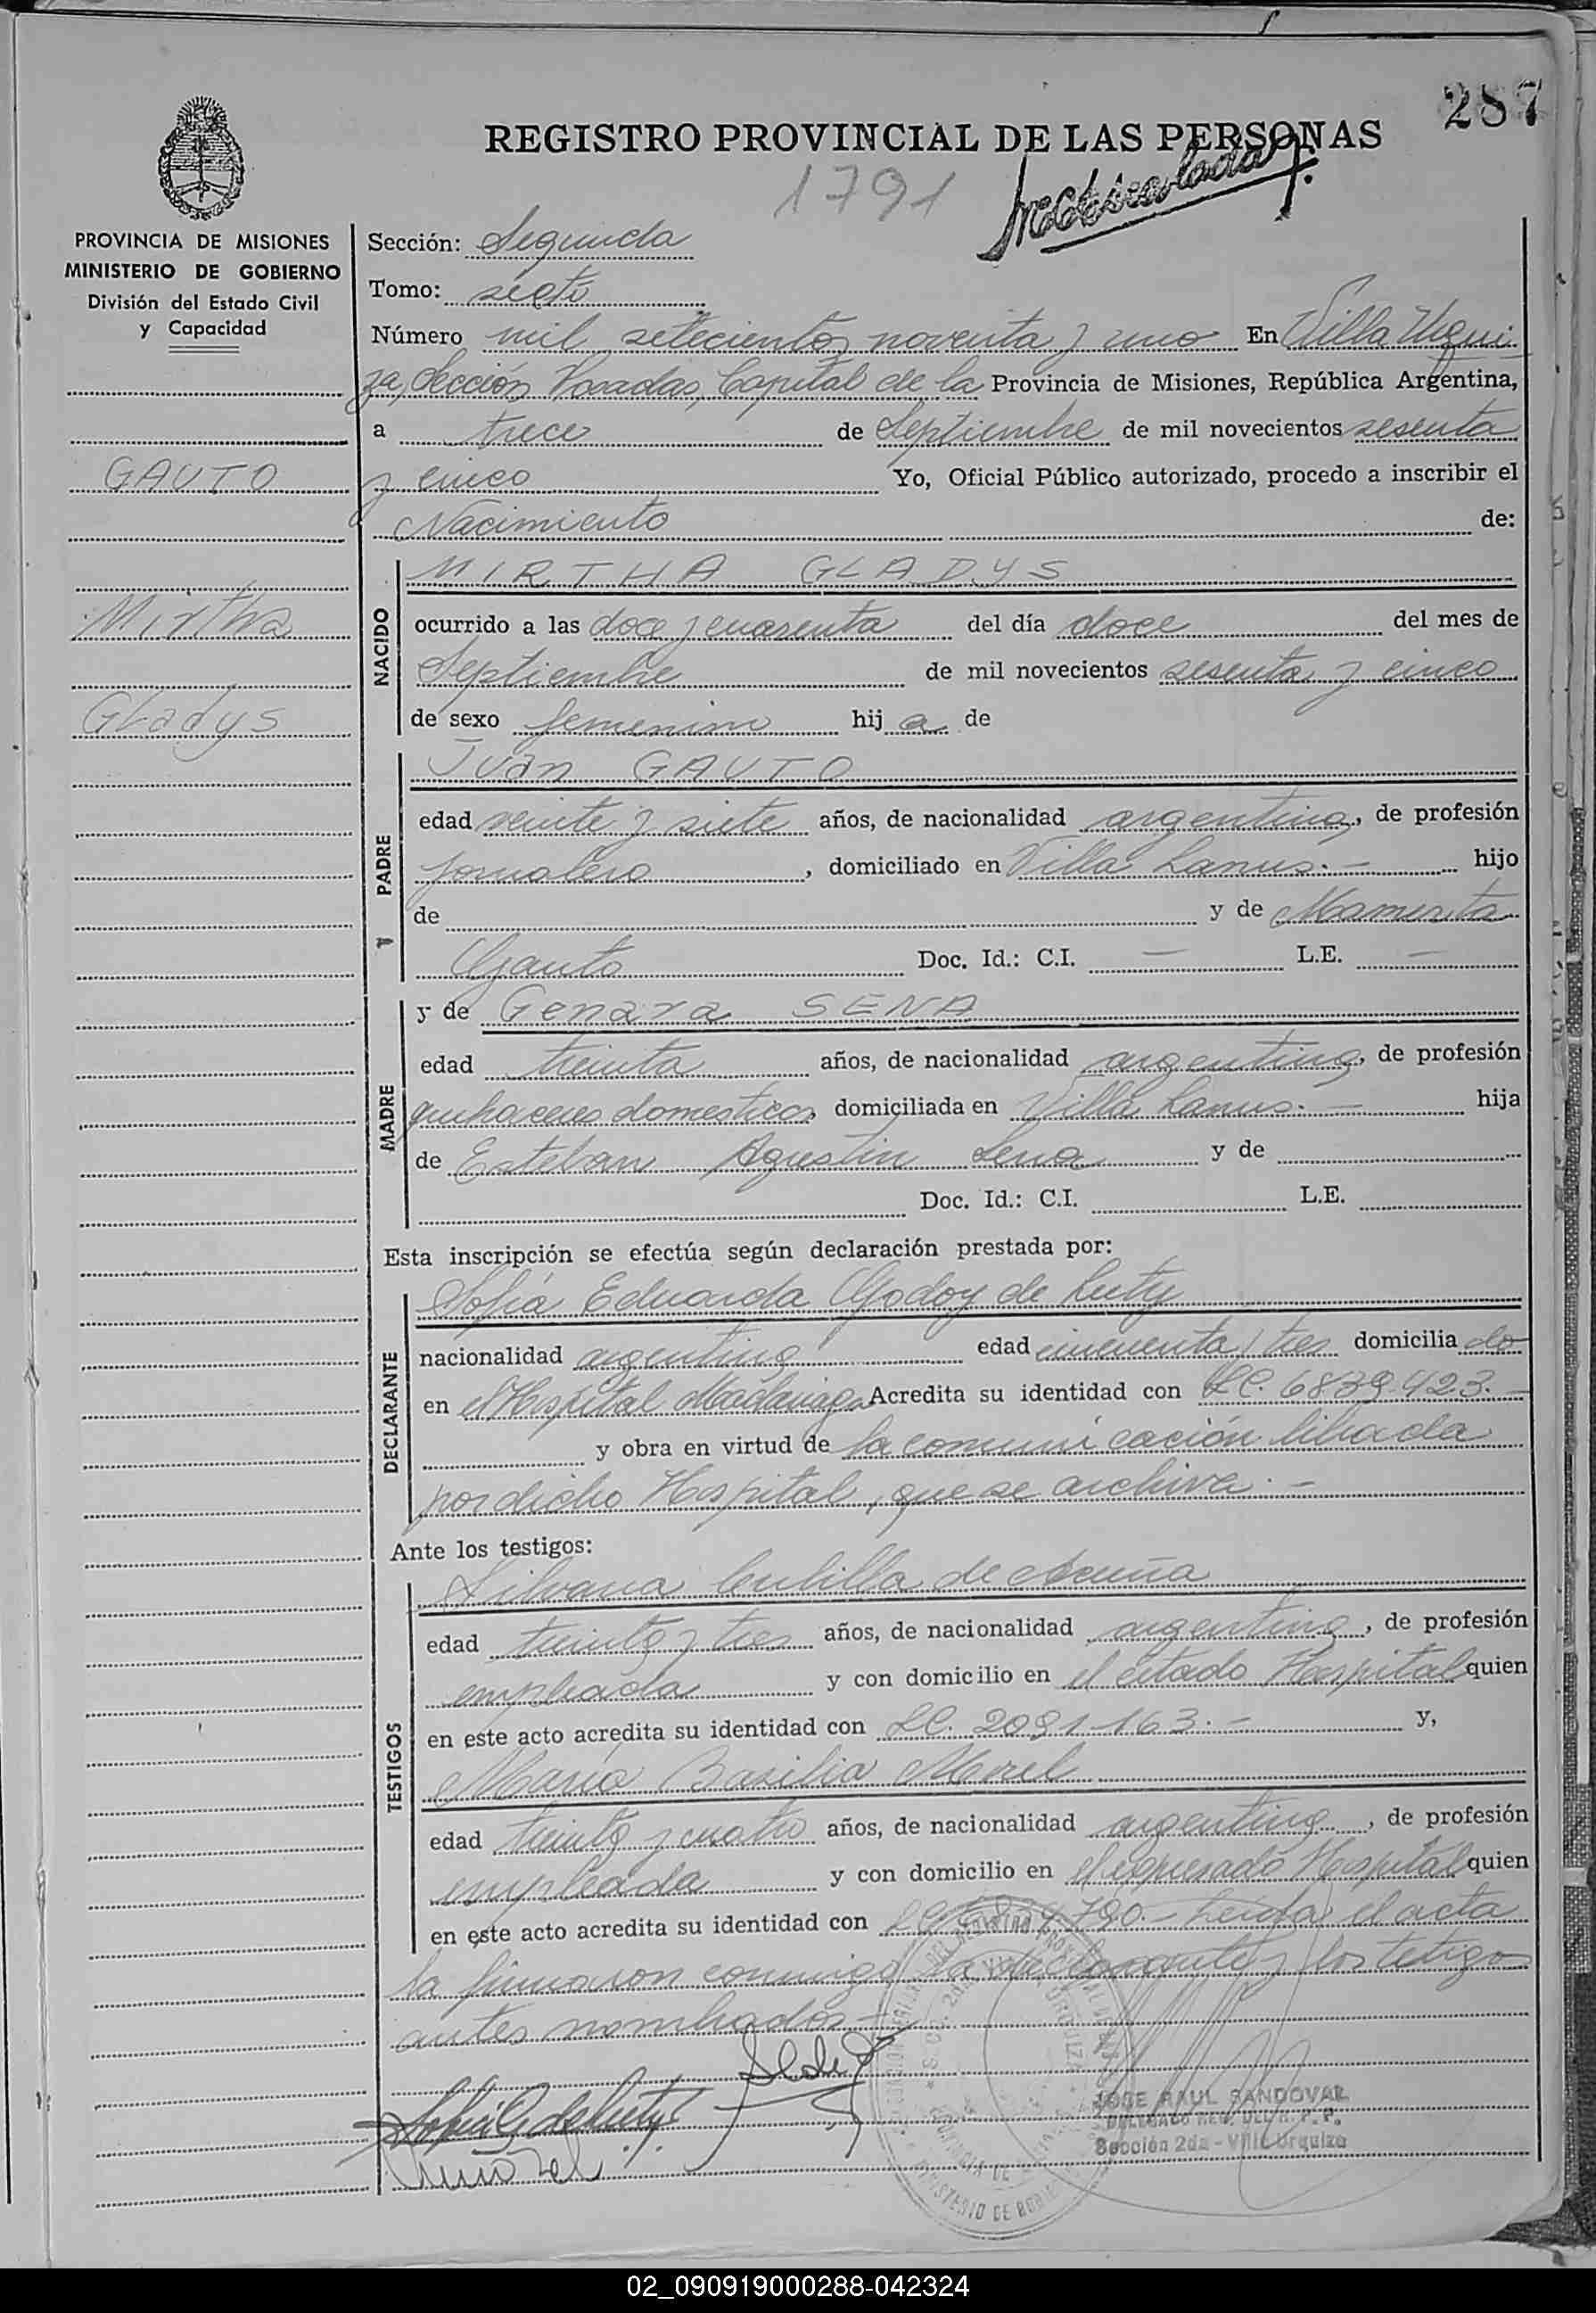 287
REGISTRO PROVINCIAL DE LAS PERSONAS
1791
PROVINCIA DE MISIONES
MINISTERIO DE GOBIERNO
División del Estado Civil
y Capacidad
GAUTO
Mirtha
Gladys
Sección: Segunda
Tomo: sexto
Número mil setecientos noventa y uno En Villa Urqui-
za, Sección Posadas, Capital de la Provincia de Misiones, República Argentina,
a trece de Septiembre de mil novecientos sesenta
y cinco Yo, Oficial Público autorizado, procedo a inscribir el
Nacimiento de:
NACIDO
MIRTHA GLADYS
ocurrido a las doce y cuarenta del día doce del mes de
Septiembre de mil novecientos sesenta y cinco
de sexo femenino hij a de
PADRE
Juan GAUTO
edad veinte y siete años, de nacionalidad argentina, de profesión
jornalero, domiciliado en Villa Lanus.- hijo
de y de Mamerta
Gauto Doc. Id.: C.I. — L.E. —
MADRE
y de Genara SENA
edad treinta años, de nacionalidad argentina, de profesión
quehaceres domesticos domiciliada en Villa Lanus.- hija
de Esteban Agustin Sena y de
Doc. Id.: C.I. L.E.
Esta inscripción se efectúa según declaración prestada por:
DECLARANTE
Sofia Eduarda Godoy de
nacionalidad argentina edad cincuenta y tres domicilia do
en el Hospital Madariaga Acredita su identidad con LC. 6839.423.-
y obra en virtud de la comunicación librada
por dicho Hospital, que se archiva.-
Ante los testigos:
TESTIGOS
Silvana de Acuña
edad treinta y tres años, de nacionalidad argentina, de profesión
empleada y con domicilio en el citado Hospital quien
en este acto acredita su identidad con LC. 2091.163.- y,
María Basilia Morel
edad treinta y cuatro años, de nacionalidad argentina, de profesión
empleada y con domicilio en el expresado Hospital quien
en este acto acredita su identidad con LC. 790.- Leida el acta
la firmaron conmigo la declarante y los testigos
antes nombrados.-
JOSE RAUL SANDOVAL
Sección 2da - Villa Urquiza
02_090919000288-042324